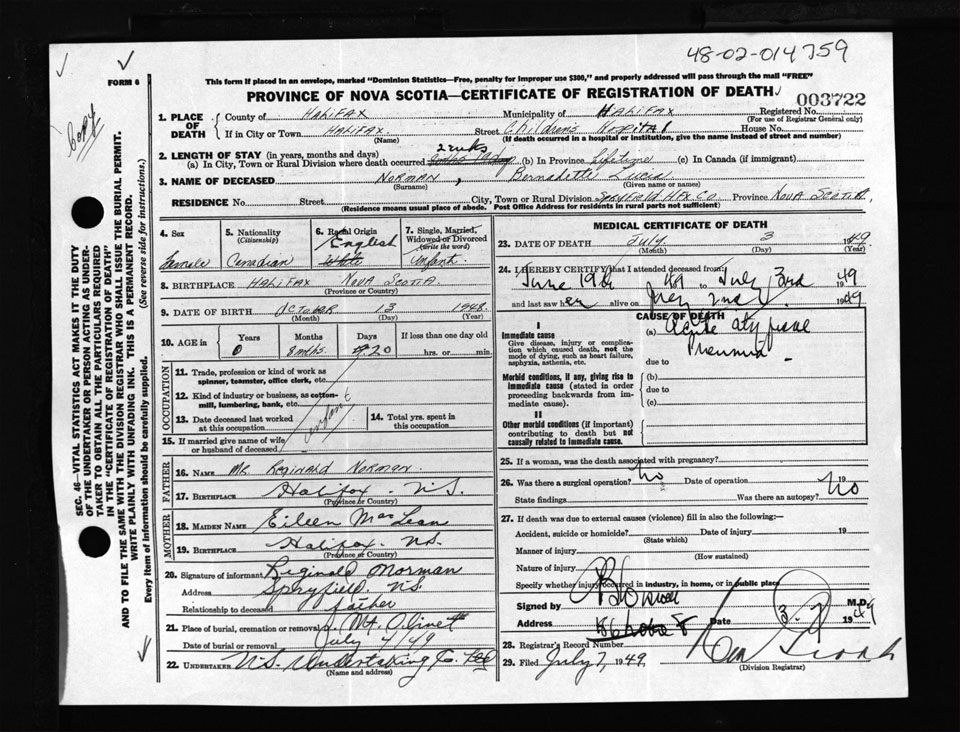 48-02-014759
FORM 6
Copy
This form if placed in an envelope, marked "Dominion Statistics—Free, penalty for improper use $300," and properly addressed will pass through the mail "FREE"
PROVINCE OF NOVA SCOTIA—CERTIFICATE OF REGISTRATION OF DEATH
003722
1. PLACE OF DEATH
County of Halifax Municipality of Halifax Registered No.
(For use of Registrar General only)
If in City or Town Halifax Street Children's Hospital House No.
(Name) (If death occurred in a hospital or institution, give the name instead of street and number)
2. LENGTH OF STAY (in years, months and days)
(a) In City, Town or Rural Division where death occurred 2 wks (b) In Province lifetime (c) In Canada (if immigrant)
3. NAME OF DECEASED Norman, Bernadette Lucia
(Surname) (Given name or names)
RESIDENCE No. Street City, Town or Rural Division Spryfield Hfx Co Province Nova Scotia
(Residence means usual place of abode. Post Office Address for residents in rural parts not sufficient)
4. Sex
Female
5. Nationality
(Citizenship)
Canadian
6. Racial Origin
English
White
7. Single, Married, Widowed or Divorced
(Write the word)
infant
8. BIRTHPLACE Halifax Nova Scotia
(Province or Country)
9. DATE OF BIRTH October 13 1948
(Month) (Day) (Year)
10. AGE in Years Months Days If less than one day old
0 8 mths. 20 hrs. or min.
OCCUPATION
11. Trade, profession or kind of work as
spinner, teamster, office clerk, etc.
12. Kind of industry or business, as cotton-
mill, lumbering, bank, etc.
infant
13. Date deceased last worked
at this occupation
14. Total yrs. spent in
this occupation
15. If married give name of wife
or husband of deceased
FATHER
16. NAME Mr. Reginald Norman
17. BIRTHPLACE Halifax N.S.
(Province or Country)
MOTHER
18. MAIDEN NAME Eileen MacLean
19. BIRTHPLACE Halifax N.S.
(Province or Country)
20. Signature of informant Reginald Norman
Address Spryfield NS
Relationship to deceased father
21. Place of burial, cremation or removal Mt. Olivet
Date of burial or removal July 4/49
22. UNDERTAKER N.S. Undertaking Co. Ltd
(Name and address)
MEDICAL CERTIFICATE OF DEATH
23. DATE OF DEATH July 3 1949
(Month) (Day) (Year)
24. I HEREBY CERTIFY that I attended deceased from:
June 19th 49 to July 3rd 1949
and last saw her alive on July 2nd 1949
CAUSE OF DEATH
I
Immediate cause
Give disease, injury or complication which caused death, not the mode of dying, such as heart failure, asphyxia, asthenia, etc.
(a) Acute atypical
Pneumonia
due to
Morbid conditions, if any, giving rise to immediate cause (stated in order proceeding backwards from immediate cause).
(b)
due to
(c)
II
Other morbid conditions (if important) contributing to death but not causally related to immediate cause.
25. If a woman, was the death associated with pregnancy?
26. Was there a surgical operation? no Date of operation 19
State findings Was there an autopsy? No
27. If death was due to external causes (violence) fill in also the following:—
Accident, suicide or homicide? Date of injury 19
(State which)
Manner of injury
(How sustained)
Nature of injury
Specify whether injury occurred in industry, in home, or in public place
Signed by M.D.
Address Date 3-7 1949
28. Registrar's Record Number
29. Filed July 7, 1949
(Division Registrar)
SEC. 46—VITAL STATISTICS ACT MAKES IT THE DUTY
OF THE UNDERTAKER OR PERSON ACTING AS UNDER-
TAKER TO OBTAIN ALL THE PARTICULARS REQUIRED
IN THE "CERTIFICATE OF REGISTRATION OF DEATH"
AND TO FILE THE SAME WITH THE DIVISION REGISTRAR WHO SHALL ISSUE THE BURIAL PERMIT.
WRITE PLAINLY WITH UNFADING INK. THIS IS A PERMANENT RECORD.
Every item of Information should be carefully supplied. (See reverse side for instructions.)